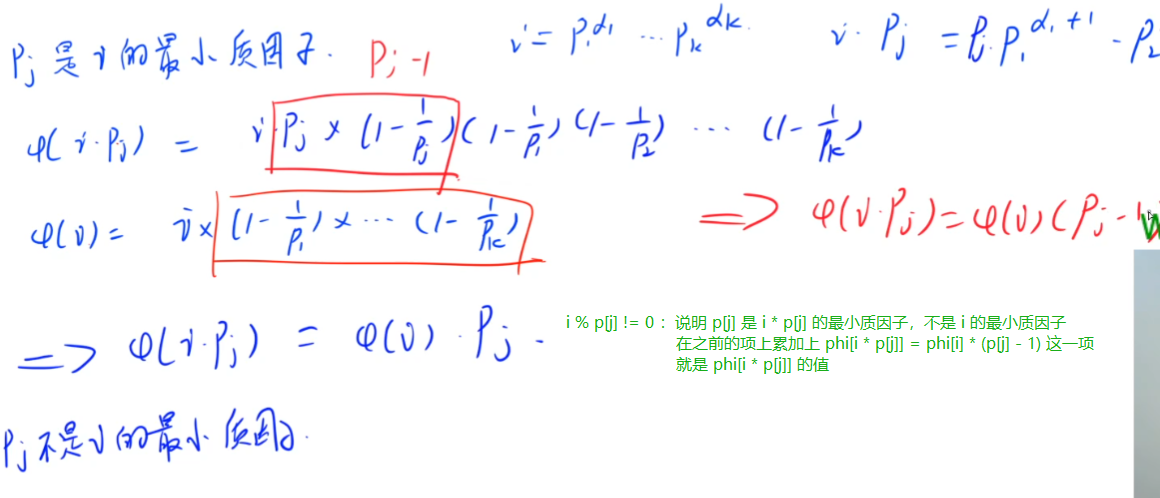 P_j 是 i 的最小质因子. P_j - 1 i = P_1^{α_1} ··· P_k^{α_k}. i · P_j = P_j · P_1^{α_1+1} - P_2
φ(i·P_j) = i · P_j × (1 - 1/P_j) (1 - 1/P_1) (1 - 1/P_2) ··· (1 - 1/P_k)
φ(i) = i × (1 - 1/P_1) × ··· (1 - 1/P_k)
=> φ(i·P_j) = φ(i) (P_j - 1
=> φ(i·P_j) = φ(i) · P_j.
i % p[j] != 0 : 说明 p[j] 是 i * p[j] 的最小质因子,不是 i 的最小质因子
在之前的项上累加上 phi[i * p[j]] = phi[i] * (p[j] - 1) 这一项
就是 phi[i * p[j]] 的值
P_j 不是 i 的最小质因子.